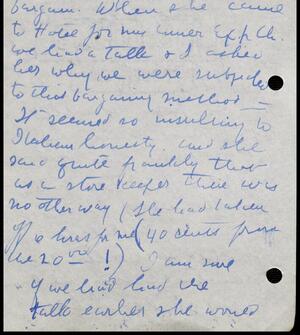 bargain. When she came
to Hotel for my
we had a talk & I asked
her why we were subjected
to this bargaining method —
It seemed so insulting to
Italian honesty. and she
said quite frankly that
as a store keeper there was
no other way (She had taken
for me (40 cents from
the 20.00 !) I am sure
if we had had the
talk earlier she would